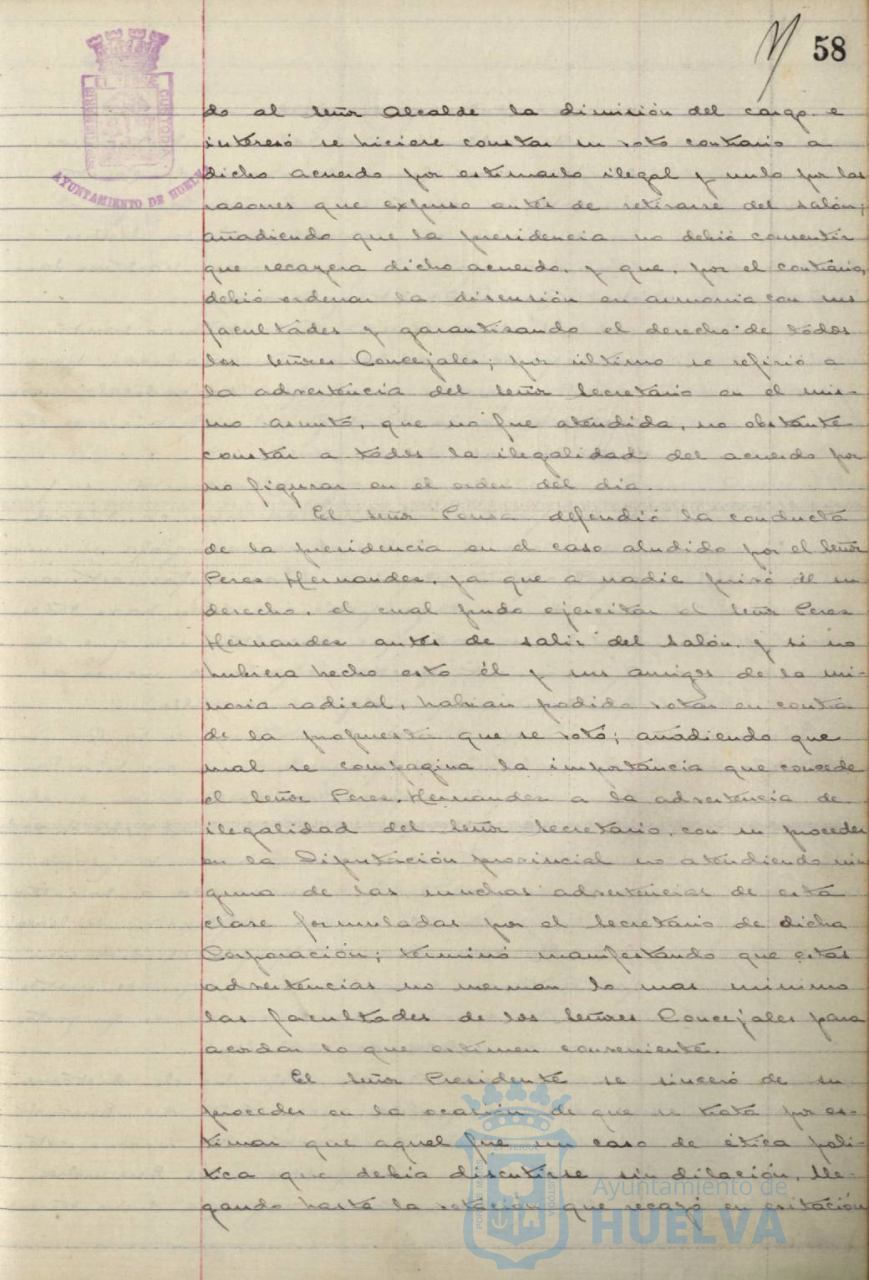 58
AYUNTAMIENTO DE HUELVA
do al Señor Alcalde la dimisión del cargo e
interesó se hiciese constar su voto contrario a
dicho acuerdo por estimarlo ilegal y nulo por las
razones que expuso antes de retirarse del salón;
añadiendo que la presidencia no debió consentir
que recayera dicho acuerdo, y que, por el contrario,
debió ordenar la discusión en armonia con sus
facultades y garantizando el derecho de todos
los Señores Concejales; por último se refirió a
la advertencia del Señor Secretario en el mis-
mo asunto, que no fue atendida, no obstante
constar a todos la ilegalidad del acuerdo por
no figurar en el orden del dia.
El Señor Ponsa defendió la conducta
de la presidencia en el caso aludido por el Señor
Peres Hernandez, ya que a nadie privó de su
derecho, el cual pudo ejercitar el Señor Peres
Hernandez antes de salir del salón, y si no
hubiera hecho esto él y sus amigos de la mi-
noria radical, habrian podido votar en contra
de la propuesta que se votó; añadiendo que
mal se compagina la importancia que concede
el Señor Peres Hernandez a la advertencia de
ilegalidad del Señor Secretario, con su proceder
en la Diputación provincial no atendiendo nin-
guna de las muchas advertencias de esta
clase formuladas por el Secretario de dicha
Corporación; terminó manifestando que estas
advertencias no merman lo mas minimo
las facultades de los Señores Concejales para
acordar lo que estimen conveniente.
El Señor Presidente se sinceró de su
proceder en la ocasión de que se trata por es-
timar que aquel fue un caso de ética poli-
tica que debia discutirse sin dilación, lle-
gando hasta la votación que recayó en evitación
Ayuntamiento de
HUELVA